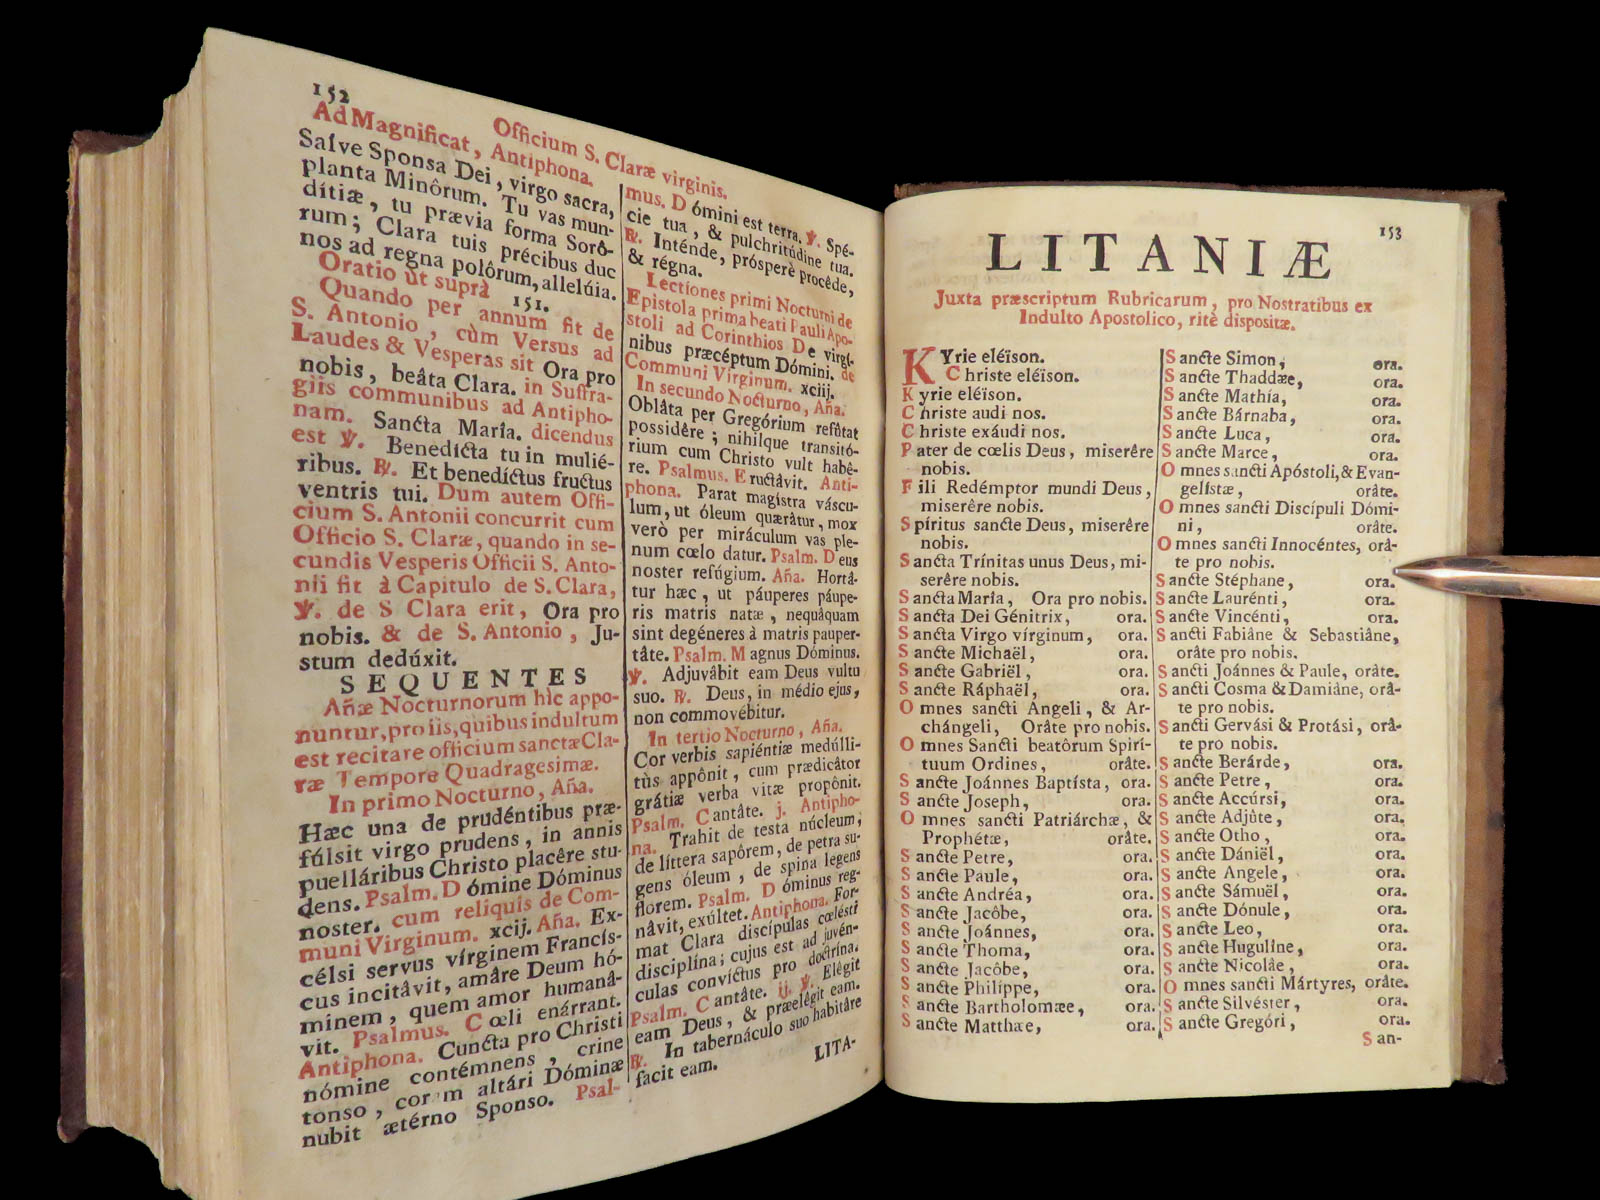 152
Officium S. Claræ virginis.
Ad Magnificat, Antiphona.
Salve Sponsa Dei, virgo sacra,
planta Minôrum. Tu vas mun-
dítiæ, tu prævia forma Sorô-
rum; Clara tuis précibus duc
nos ad regna polôrum, allelúia.
Oratio ut suprà 151.
Quando per annum fit de
S. Antonio, cùm Versus ad
Laudes & Vesperas sit Ora pro
nobis, beâta Clara. in Suffra-
giis communibus ad Antipho-
nam. Sancta María. dicendus
est ℣. Benedícta tu in mulié-
ribus. ℟. Et benedíctus fructus
ventris tui. Dum autem Offi-
cium S. Antonii concurrit cum
Officio S. Claræ, quando in se-
cundis Vesperis Officii S. Anto-
nii fit à Capitulo de S. Clara,
℣. de S Clara erit, Ora pro
nobis. & de S. Antonio, Ju-
stum dedúxit.
SEQUENTES
Añæ Nocturnorum hic appo-
nuntur, pro iis, quibus indultum
est recitare officium sanctæ Cla-
ræ Tempore Quadragesimæ.
In primo Nocturno, Aña.
Hæc una de prudéntibus præ-
fúlsit virgo prudens, in annis
puelláribus Christo placêre stu-
dens. Psalm. D ómine Dóminus
noster. cum reliquis de Com-
muni Virginum. xcij. Aña. Ex-
célsi servus vírginem Francís-
cus incitâvit, amâre Deum hó-
minem, quem amor humanâ-
vit. Psalmus. C œli enárrant.
Antiphona. Cuncta pro Christi
nómine contémnens, crine
tonso, cor m altári Dóminæ
nubit ætérno Sponso. Psal-
mus. D ómini est terra. ℣. Spé-
cie tua, & pulchritúdine tua.
℟. Inténde, próspere procêde,
& régna.
Lectiones primi Nocturni de
Epistola prima beati Pauli Apo-
stoli ad Corinthios D e virgí-
nibus præcéptum Dómini. de
Communi Virginum. xciij.
In secundo Nocturno, Aña.
Oblâta per Gregórium refûtat
possidêre; nihilque transitó-
rium cum Christo vult habê-
re. Psalmus. E ructâvit. Anti-
phona. Parat magístra váscu-
lum, ut óleum quærâtur, mox
verò per miráculum vas ple-
num cœlo datur. Psalm. D eus
noster refúgium. Aña. Hortâ-
tur hæc, ut páuperes páupe-
ris matris natæ, nequâquam
sint degéneres à matris pauper-
tâte. Psalm. M agnus Dóminus.
℣. Adjuvâbit eam Deus vultu
suo. ℟. Deus, in médio ejus,
non commovébitur.
In tertio Nocturno, Aña.
Cor verbis sapiéntiæ medúlli-
tùs appônit, cum prædicâtor
grátiæ verba vitæ propônit.
Psalm. C antâte. j. Antipho-
na. Trahit de testa núcleum,
de líttera sapôrem, de petra su-
gens óleum, de spina legens
florem. Psalm. D óminus reg-
nâvit, exúltet. Antiphona. For-
mat Clara discípulas cœlésti
disciplína; cujus est ad juvén-
culas convíctus pro doctrína.
Psalm. C antâte. ij. ℣. Elêgit
eam Deus, & præelêgit eam.
℟. In tabernáculo suo habitâre
facit eam.
LITA-
153
LITANIÆ
Juxta præscriptum Rubricarum, pro Nostratibus ex
Indulto Apostolico, ritè dispositæ.
KYrie eléïson.
C hriste eléïson.
K yrie eléïson.
C hriste audi nos.
C hriste exáudi nos.
P ater de cœlis Deus, miserêre
nobis.
F ili Redémptor mundi Deus,
miserêre nobis.
S píritus sancte Deus, miserêre
nobis.
S ancta Trínitas unus Deus, mi-
serêre nobis.
S ancta María, Ora pro nobis.
S ancta Dei Génitrix, ora.
S ancta Virgo vírginum, ora.
S ancte Michaël, ora.
S ancte Gabriël, ora.
S ancte Ráphaël, ora.
O mnes sancti Angeli, & Ar-
chángeli, Orâte pro nobis.
O mnes Sancti beatôrum Spirí-
tuum Ordines, orâte.
S ancte Joánnes Baptísta, ora.
S ancte Joseph, ora.
O mnes sancti Patriárchæ, &
Prophétæ, orâte.
S ancte Petre, ora.
S ancte Paule, ora.
S ancte Andréa, ora.
S ancte Jacôbe, ora.
S ancte Joánnes, ora.
S ancte Thoma, ora.
S ancte Jacôbe, ora.
S ancte Philíppe, ora.
S ancte Bartholomæe, ora.
S ancte Matthæe, ora.
S ancte Simon, ora.
S ancte Thaddæe, ora.
S ancte Mathía, ora.
S ancte Bárnaba, ora.
S ancte Luca, ora.
S ancte Marce, ora.
O mnes sancti Apóstoli, & Evan-
gelístæ, orâte.
O mnes sancti Discípuli Dómi-
ni, orâte.
O mnes sancti Innocéntes, orâ-
te pro nobis.
S ancte Stéphane, ora.
S ancte Laurénti, ora.
S ancte Vincénti, ora.
S ancti Fabiâne & Sebastiâne,
orâte pro nobis.
S ancti Joánnes & Paule, orâte.
S ancti Cosma & Damiâne, orâ-
te pro nobis.
S ancti Gervási & Protási, orâ-
te pro nobis.
S ancte Berárde, ora.
S ancte Petre, ora.
S ancte Accúrsi, ora.
S ancte Adjûte, ora.
S ancte Otho, ora.
S ancte Dániël, ora.
S ancte Angele, ora.
S ancte Sámuël, ora.
S ancte Dónule, ora.
S ancte Leo, ora.
S ancte Hugulíne, ora.
S ancte Nicolâe, ora.
O mnes sancti Mártyres, orâte.
S ancte Silvéster, ora.
S ancte Gregóri, ora.
S an-